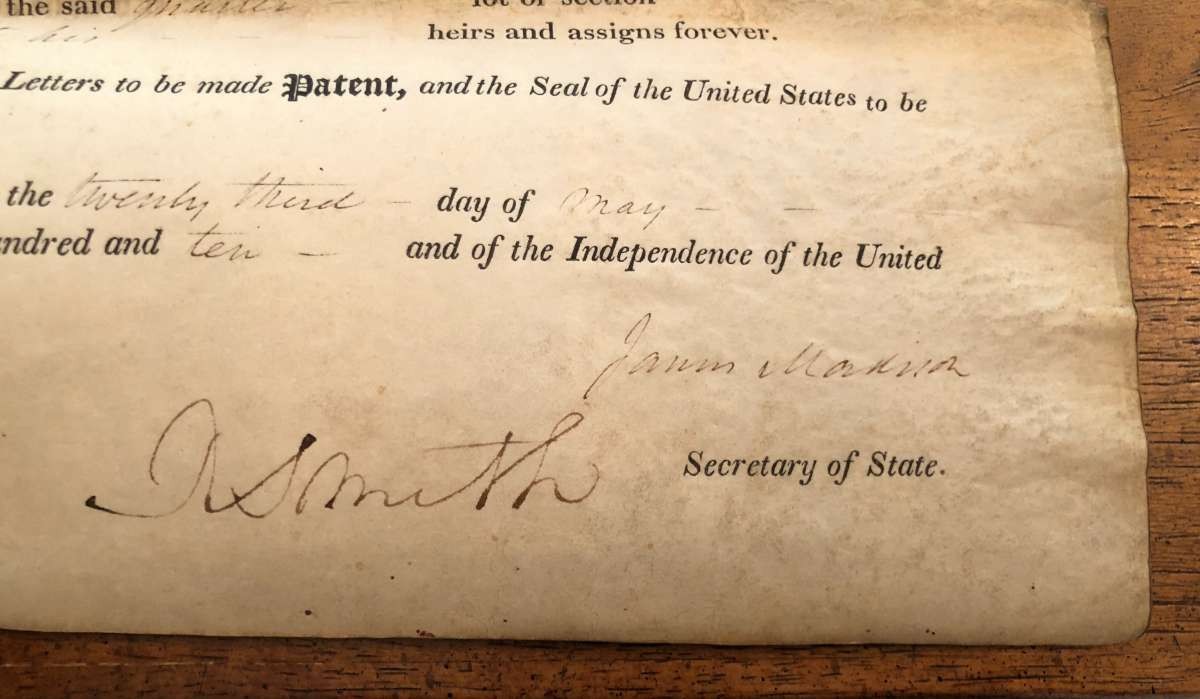 the said quarter lot of section
his
heirs and assigns forever.
Letters to be made Patent, and the Seal of the United States to be
the twenty third – day of May – –
ndred and ten – and of the Independence of the United
James Madison
R Smith
Secretary of State.